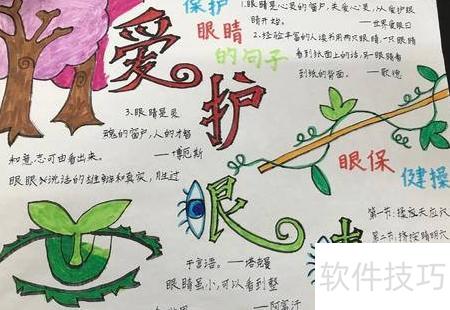 保护
眼睛
的句子
爱护
1.眼睛是心灵的窗户,关爱心灵,从爱护眼
睛开始。 ——世界爱眼日
2.经验丰富的人读书用两只眼睛,一只眼睛
看到纸面上的话,另一眼睛看
到纸的背面。 ——歌德
3.眼睛是灵
魂的窗户,人的才智
和意志可由看出来。 ——博厄斯
眼睛
千言语。——塔克曼
眼睛虽小,可以看到整
——阿富汗
眼保
健操
第一节:揉按天应穴
第二节:挤按睛明穴
软件技巧